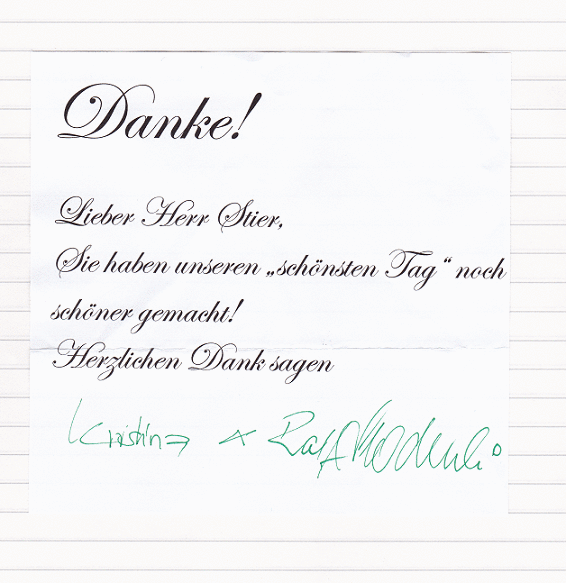 Danke!
Lieber Herr Stier,
Sie haben unseren „schönsten Tag“ noch
schöner gemacht!
Herzlichen Dank sagen
Kristin Ralf